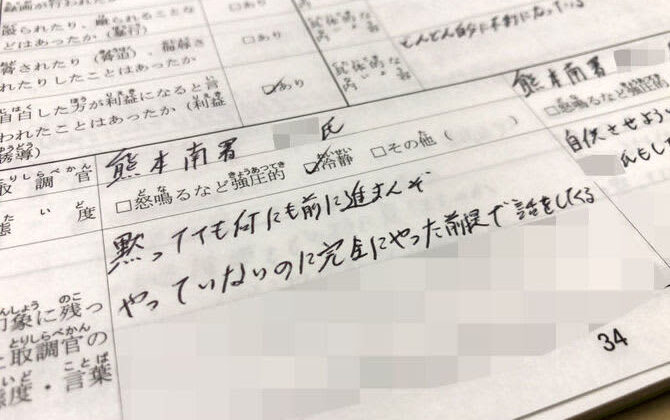 蹴られたり、殴られるな
どはあったか（暴行）
□あり
脅されたり（脅迫）、
れたりしたことはあったか
□あり
自白した方が利益になると言
われたことはあったか（利益
誘導）
☑あり
とりしらべかん
取調官
熊本南署
氏
熊本南署
たいど
態度
□怒鳴るなど強圧的
☑冷静
□その他（
）
□怒鳴るなど強圧的
自供させよう
氏もし
黙ってても何にも前に進まんぞ
やっていないのに完全にやった前提で話をしてくる
印象に残っ
た取調官の
態度・言葉
34